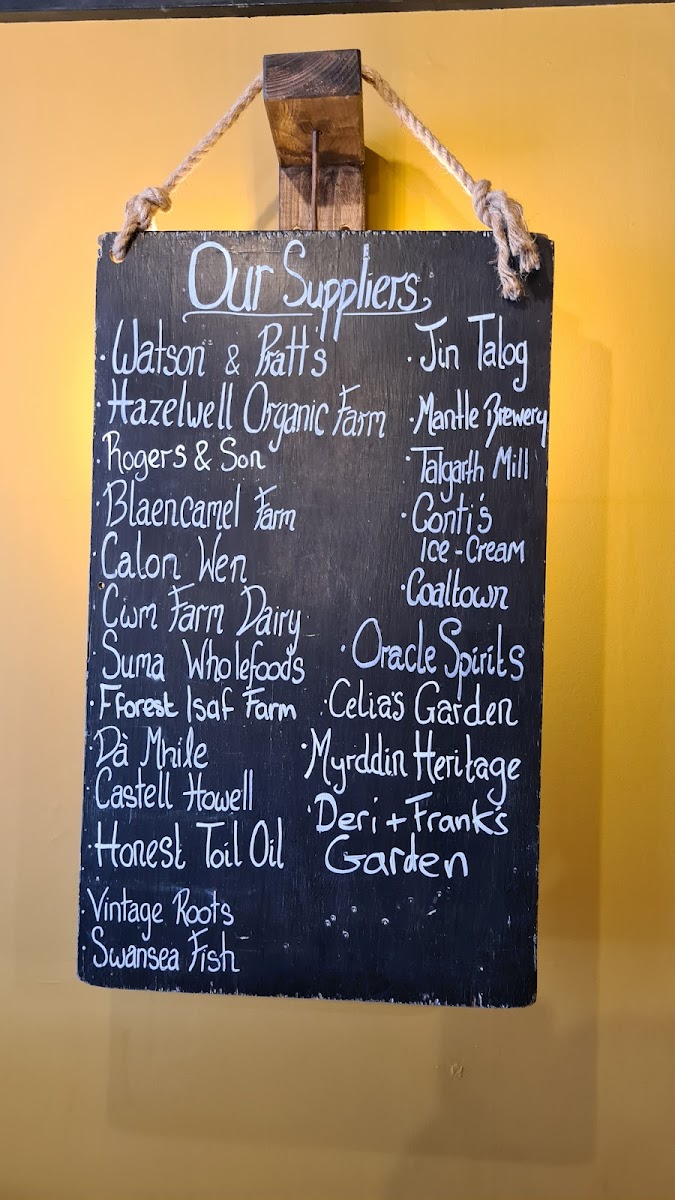 Our Suppliers
· Watson & Pratt's
· Hazelwell Organic Farm
· Rogers & Son
· Blaencamel Farm
· Calon Wen
· Cwm Farm Dairy
· Suma Wholefoods
· Fforest Isaf Farm
· Dà Mhile
· Castell Howell
· Honest Toil Oil
· Vintage Roots
· Swansea Fish
· Jin Talog
· Mantle Brewery
· Talgarth Mill
· Conti's
Ice-Cream
· Coaltown
· Oracle Spirits
· Celia's Garden
· Myrddin Heritage
· Deri + Frank's
Garden